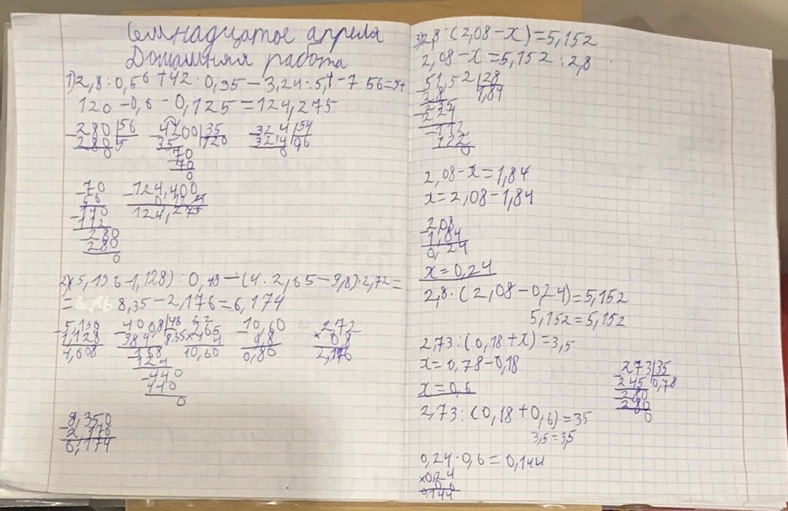 Семнадцатое апреля
Домашняя работа
1) 2,8 : 0,56 + 42 : 0,35 - 3,24 : 5,4 - 7 : 56 = 5+
120 - 0,6 - 0,125 = 124,275
280 56
280 5
0
4200 35
35 120
70
70
0
32,4 54
324 0,6
0
70
56
140
112
280
280
0
124,400
124,275
2) (5,136 - 1,128) : 0,48 - (4 · 2,65 - 9,8) · 2,72 =
= 8,35 - 2,176 = 6,174
5,136
1,128
4,008
4008 48
384 8,35
168
144
240
240
0
2,65
4
10,60
10,60
9,8
0,80
2,72
0,8
2,176
8,350
2,176
6,174
3) 2,8 · (2,08 - x) = 5,152
2,08 - x = 5,152 : 2,8
51,52 28
28 1,84
235
224
112
112
0
2,08 - x = 1,84
x = 2,08 - 1,84
2,08
1,84
0,24
x = 0,24
2,8 · (2,08 - 0,24) = 5,152
5,152 = 5,152
2,73 : (0,18 + x) = 3,5
x = 0,78 - 0,18
x = 0,6
273 35
245 0,78
280
280
0
2,73 : (0,18 + 0,6) = 35
3,5 = 3,5
0,24 · 0,6 = 0,144
×0,24
0,6
0,144